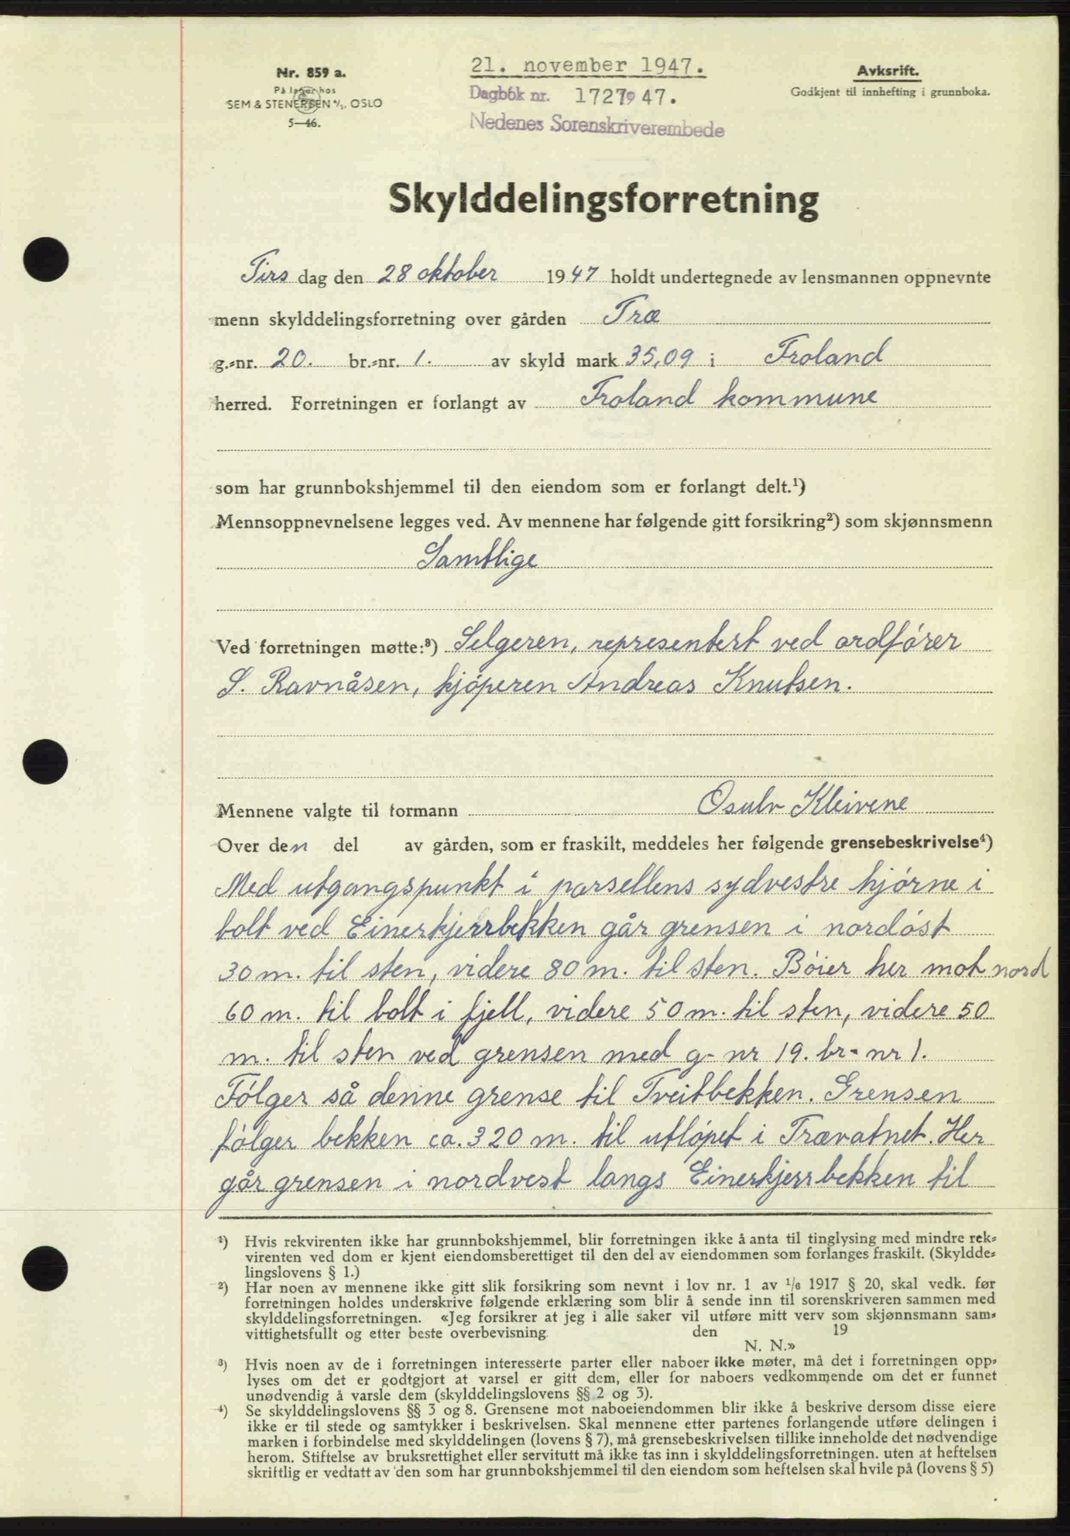 21. november 1947.
Nr. 859 a.
Avksrift.
På lager hos
Dagbok nr. 1727 1947.
Godkjent til innhefting i grunnboka.
SEM & STENERSEN A/S, OSLO
5—46.
Nedenes Sorenskriverembede
Skylddelingsforretning
Tirsdag den 28 oktober 1947 holdt undertegnede av lensmannen oppnevnte
menn skylddelingsforretning over gården Træ
g.-nr. 20. br.-nr. 1. av skyld mark 35,09 i Froland
herred. Forretningen er forlangt av Froland kommune
som har grunnbokshjemmel til den eiendom som er forlangt delt.¹)
Mennsoppnevnelsene legges ved. Av mennene har følgende gitt forsikring²) som skjønnsmenn
Samtlige
Ved forretningen møtte:³) Selgeren, representert ved ordfører
S. Ravnåsen, kjøperen Andreas Knutsen.
Mennene valgte til formann Osulv Kleivene
Over den del av gården, som er fraskilt, meddeles her følgende grensebeskrivelse⁴)
Med utgangspunkt i parsellens sydvestre hjørne i
bolt ved Einerkjerrbekken går grensen i nordøst
30 m. til sten, videre 80 m. til sten. Bøier her mot nord
60 m. til bolt i fjell, videre 50 m. til sten, videre 50
m. til sten ved grensen med g- nr 19. br- nr 1.
Følger så denne grense til Tveitbekken. Grensen
følger bekken ca. 320 m. til utløpet i Trævatnet. Her
går grensen i nordvest langs Einerkjerrbekken til
¹) Hvis rekvirenten ikke har grunnbokshjemmel, blir forretningen ikke å anta til tinglysing med mindre rek-
virenten ved dom er kjent eiendomsberettiget til den del av eiendommen som forlanges fraskilt. (Skyldde-
lingslovens § 1.)
²) Har noen av mennene ikke gitt slik forsikring som nevnt i lov nr. 1 av 1/6 1917 § 20, skal vedk. før
forretningen holdes underskrive følgende erklæring som blir å sende inn til sorenskriveren sammen med
skylddelingsforretningen. «Jeg forsikrer at jeg i alle saker vil utføre mitt verv som skjønnsmann sam-
vittighetsfullt og etter beste overbevisning den 19
N. N.»
³) Hvis noen av de i forretningen interesserte parter eller naboer ikke møter, må det i forretningen opp-
lyses om det er godtgjort at varsel er gitt dem, eller for naboers vedkommende om det er funnet
unødvendig å varsle dem (skylddelingslovens §§ 2 og 3).
⁴) Se skylddelingslovens §§ 3 og 8. Grensene mot naboeiendommen blir ikke å beskrive dersom disse eiere
ikke er til stede og samtykker i beskrivelsen. Skal mennene etter partenes forlangende utføre delingen i
marken i forbindelse med skylddelingen (lovens § 7), må grensebeskrivelsen tillike inneholde det nødvendige
herom. Stiftelse av bruksrettighet eller servitutt må ikke tas inn i skylddelingsforretningen. uten at heftelsen
skriftlig er vedtatt av den som har grunnbokshjemmel til den eiendom som heftelsen skal hvile på (lovens § 5)